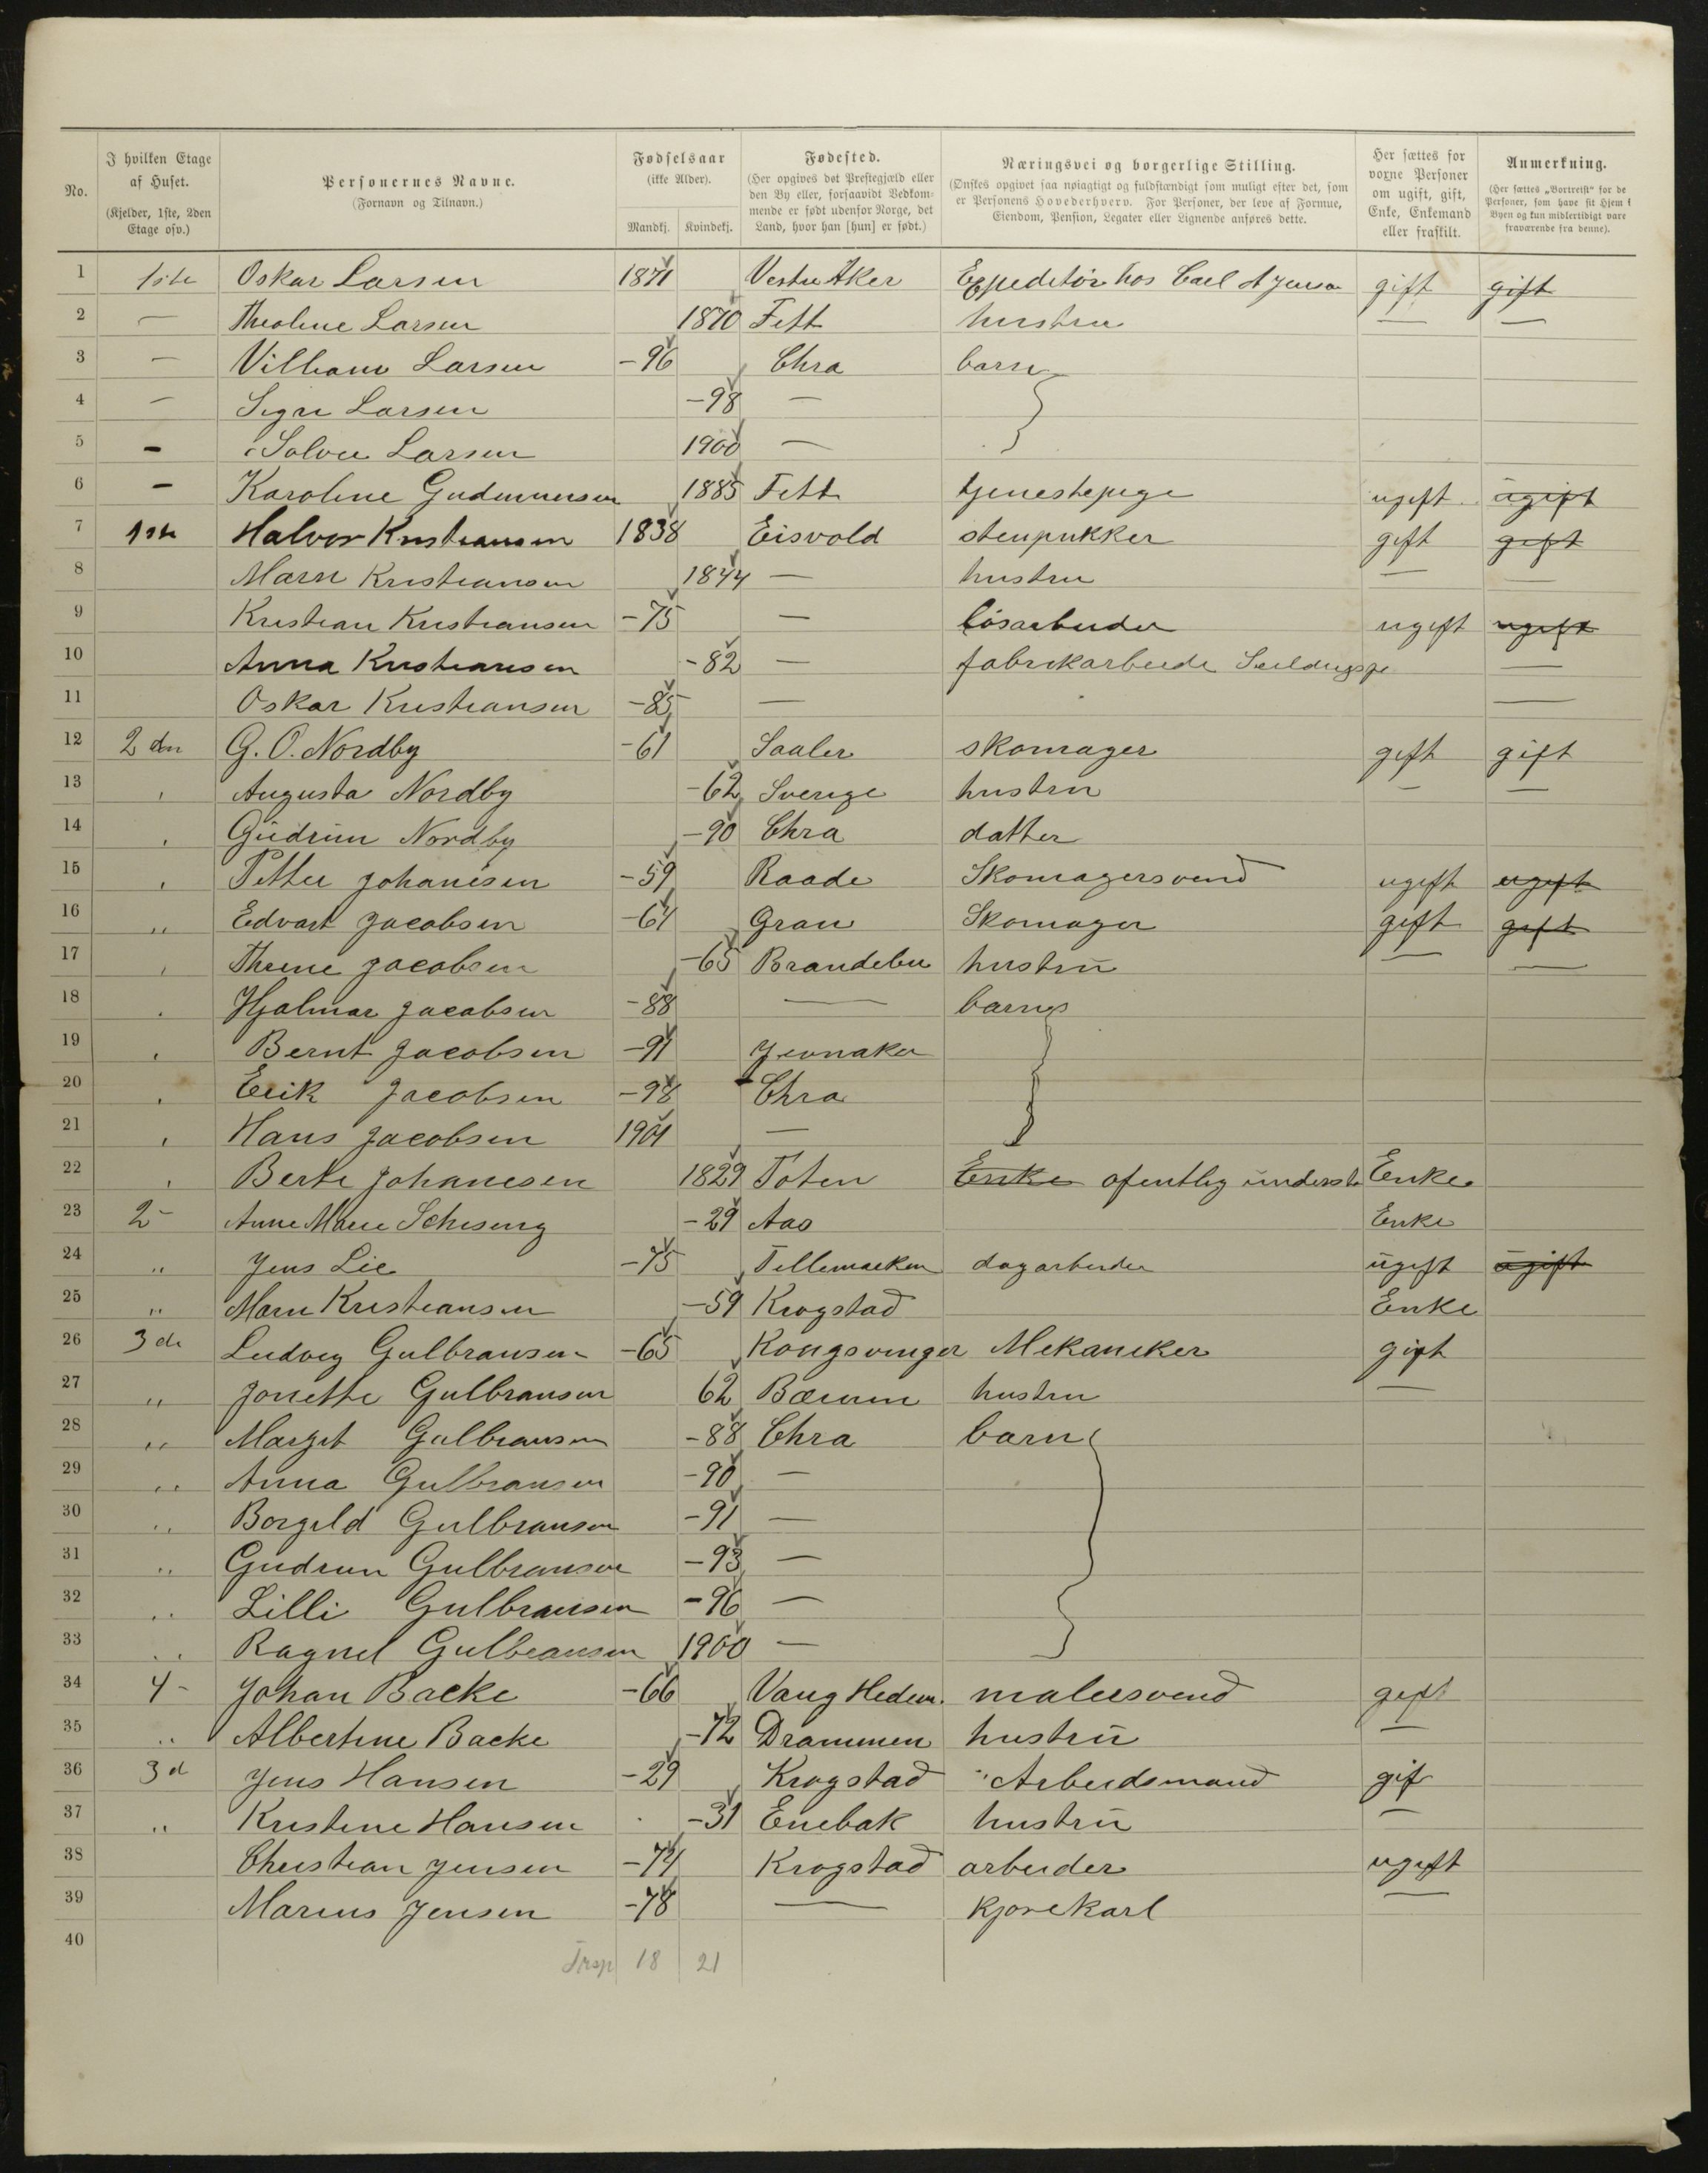 No.
I hvilken Etage af Huset. (Kjelder, 1ste, 2den Etage osv.)
Personernes Navne. (Fornavn og Tilnavn.)
Fødselsaar (ikke Alder). Mandkj. Kvindekj.
Fødested. (Her opgives det Prestegjæld eller den By eller, forsaavidt Vedkommende er født udenfor Norge, det Land, hvor han [hun] er født.)
Næringsvei og borgerlige Stilling. (Ønskes opgivet saa nøiagtigt og fuldstændigt som muligt efter det, som er Personens Hovederhverv. For Personer, der leve af Formue, Eiendom, Pension, Legater eller Lignende anføres dette.)
Her sættes for voxne Personer om ugift, gift, Enke, Enkemand eller fraskilt.
Anmerkning. (Her sættes „Bortreist“ for de Personer, som have sit Hjem i Byen og kun midlertidigt vare fraværende fra denne).
1 1ste Oskar Larsen 1871 Vestre Aker Expeditør hos Carl A Jensen gift gift
2 — Theoline Larsen 1870 Fett hustru — —
3 — Vilham Larsen -96 Chra barn
4 — Sigri Larsen -98 —
5 - Solvei Larsen 1900 —
6 - Karoline Gudmunsen 1885 Fett tjenestepige ugift ugift
7 1ste Halvor Kristiansen 1838 Eisvold stenpukker gift gift
8 Marn Kristiansen 1844 — hustru — —
9 Kristian Kristiansen -75 — løsarbeider ugift ugift
10 Anna Kristiansen -82 — fabrikarbeide —
11 Oskar Kristiansen -85 — —
12 2den G. O. Nordby -61 Saaler skomager gift gift
13 Augusta Nordby -62 Sverige hustru — —
14 Gudrun Nordby -90 Chra datter
15 Petter Johanesen -59 Raade Skomagersvend ugift ugift
16 " Edvart Jacobsen -64 Gran Skomager gift gift
17 Thrine Jacobsen -65 Brandebu hustru — —
18 Hjalmar Jacobsen -88 — barn
19 Bernt Jacobsen -91 Jevnaker
20 Erik Jacobsen -98 Chra
21 Hans Jacobsen 1901 —
22 Berte Johanesen 1829 Toten Enke ofentlig underst Enke
23 2- Anne Marie -29 Aas Enke
24 " Jens Lie -75 Tellemarken dagarbeider ugift ugift
25 " Marn Kristiansen -59 Krogstad Enke
26 3de Ludvig Gulbransen -65 Kongsvinger Mekaniker gift
27 " Jonette Gulbransen 62 Bærum hustru —
28 " Margit Gulbransen -88 Chra barn
29 " Anna Gulbransen -90 —
30 " Borgild Gulbransen -91 —
31 " Gudrun Gulbransen -93 —
32 " Lilli Gulbransen -96 —
33 " Ragnel Gulbransen 1900 —
34 4- Johan Backe -66 Vang Hedem. malersvend gift
35 " Albertine Backe -72 Drammen hustru —
36 3d Jens Hansen -29 Krogstad Arbeidsmand gif
37 " Kristine Hansen -31 Enebak hustru —
38 Christian Jensen -74 Krogstad arbeider ugift
39 Marius Jensen -78 — kjørekarl —
40
Trsp 18 21